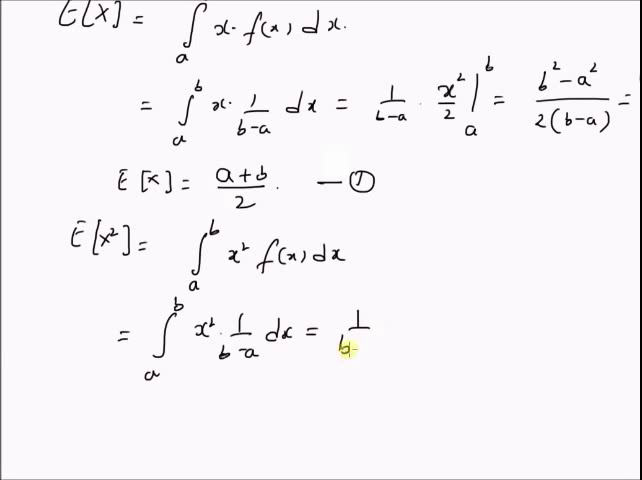 E[X] = ∫ₐ x. f(x) dx.
= ∫ₐᵇ x. 1/(b-a) dx = 1/(b-a) . x²/2 |ₐᵇ = (b²-a²)/(2(b-a)) =
E[x] = (a+b)/2 . — ①
E[x²] = ∫ₐᵇ x² f(x) dx
= ∫ₐᵇ x². 1/(b-a) dx = 1/(b-